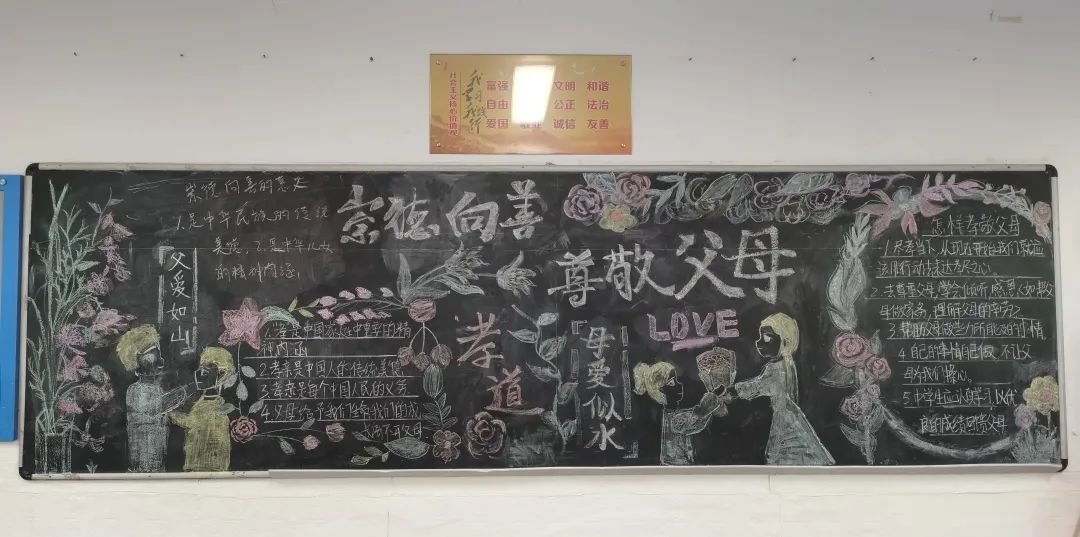 社会主义核心价值观
我
我践行
富强 文明 和谐
自由 公正 法治
爱国 敬业 诚信 友善
崇德向善的意义
1.是中华民族的传统
美德,2.是中华儿女
的精神内涵
父爱如山
崇德向善
尊敬父母
孝道
1.孝是中国家庭中重要的精
神内涵
2.孝亲是中国人的传统美德
3.孝亲是每个中国人民的义务
4.父母给予我们生命我们的成
长离不开父母
母爱似水
LOVE
怎样孝敬父母
1.尽孝当下,从现在开始我们就应
该用行动去表达孝心。
2.去尊重父母,学会倾听,感恩父母,帮父
母做家务,理解父母的辛劳。
3.帮助父母做些力所能及的事情
4.自己的事情自己做,不让父
母为我们操心。
5.中学生应认真学习,以优
良的成绩回馈父母